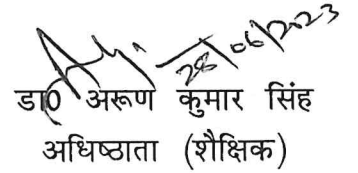 28/06/2023
डा0 अरूण कुमार सिंह
अधिष्ठाता (शैक्षिक)